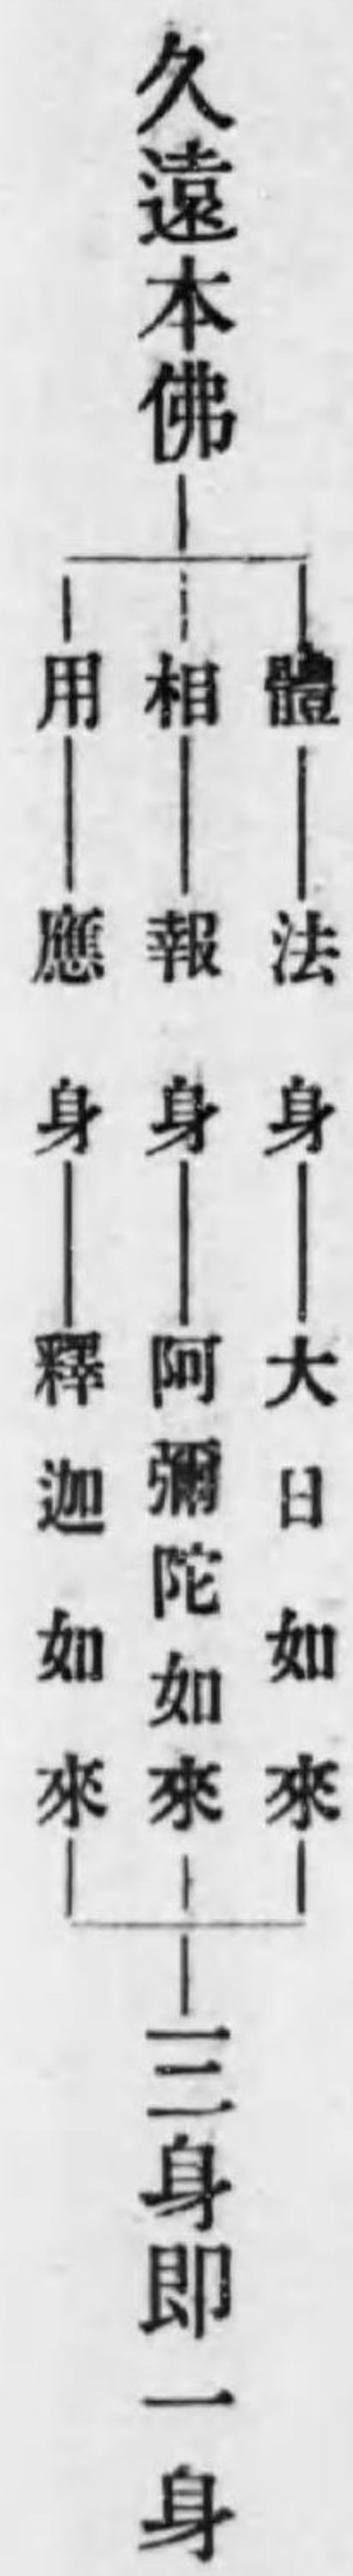 久遠本佛
體 法身 大日如來
相 報身 阿彌陀如來
用 應身 釋迦如來
三身即一身